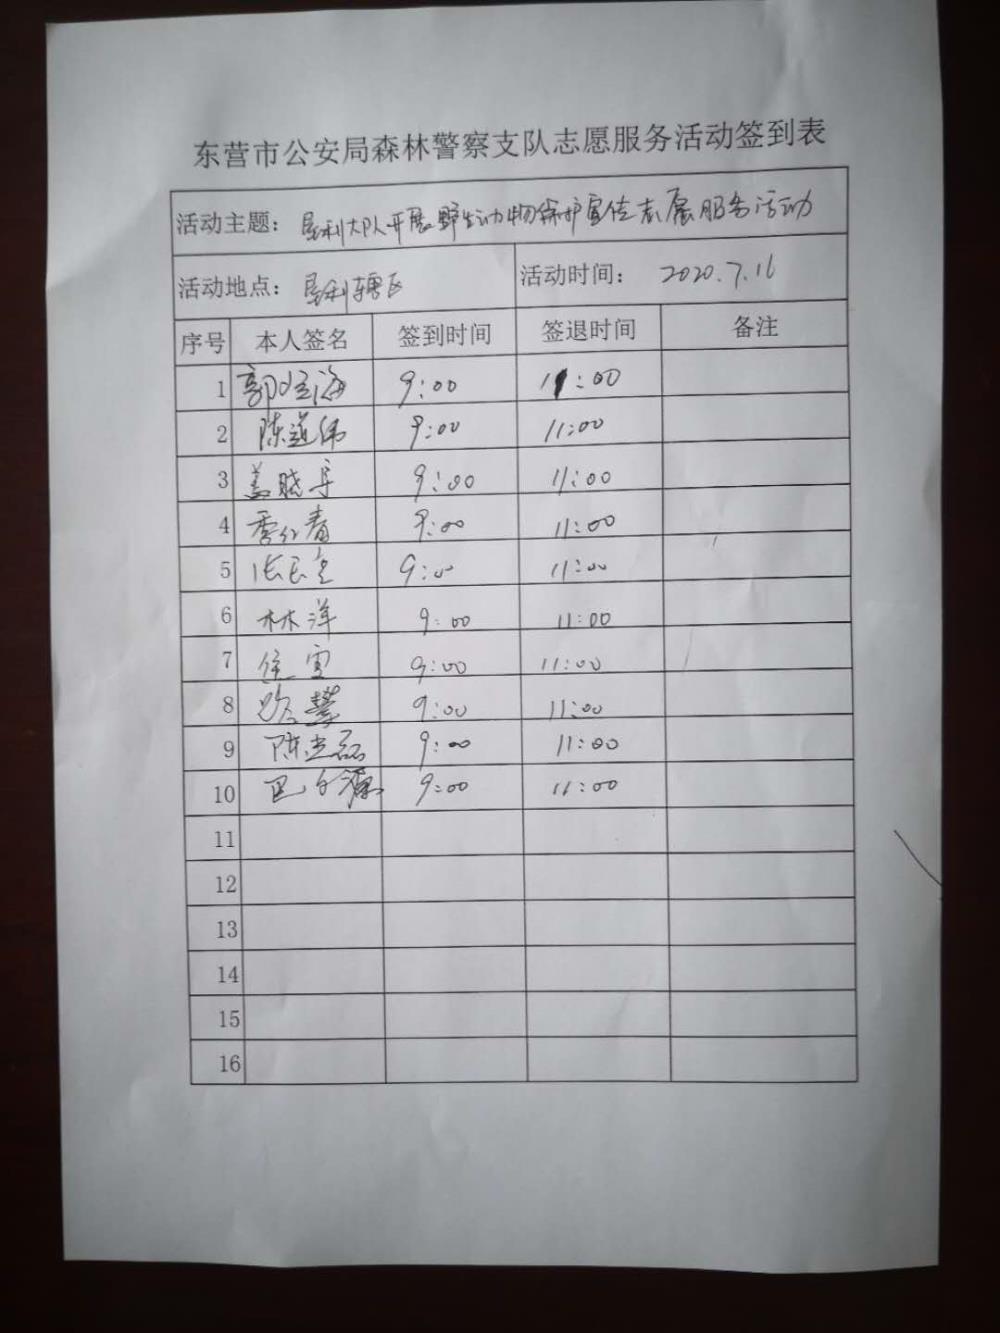 东营市公安局森林警察支队志愿服务活动签到表
活动主题： 垦利大队开展野生动物保护宣传志愿服务活动
活动地点： 垦利辖区 活动时间： 2020.7.16
序号 本人签名 签到时间 签退时间 备注
1 海 9:00 11:00
2 陈道伟 9:00 11:00
3 盖晓 9:00 11:00
4 9:00 11:00
5 张 9:00 11:00
6 林洋 9:00 11:00
7 9:00 11:00
8 9:00 11:00
9 陈 磊 9:00 11:00
10 巴 9:00 11:00
11
12
13
14
15
16